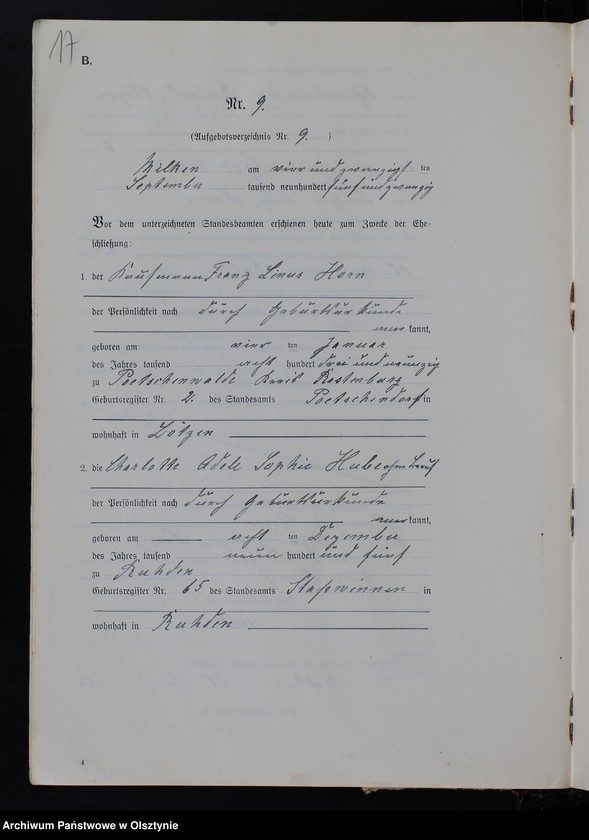 17
B.
Nr. 9.
(Aufgebotsverzeichnis Nr. 9. )
Milken am vier und zwanzigsten
September tausend neunhundert fünf und zwanzig
Vor dem unterzeichneten Standesbeamten erschienen heute zum Zwecke der Ehe-
schließung:
1. der Kaufmann Franz Linus Horn
der Persönlichkeit nach durch Geburtsurkunde
anerkannt,
geboren am vier ten Januar
des Jahres tausend acht hundert drei und neunzig
zu Poetschenwalde Kreis Rastenburg
Geburtsregister Nr. 2. des Standesamts Poetschendorf in
wohnhaft in Lötzen
2. die Charlotte Adele Sophie ohne Beruf
der Persönlichkeit nach durch Geburtsurkunde
anerkannt,
geboren am acht ten Dezember
des Jahres tausend neun hundert und fünf
zu Ruhden
Geburtsregister Nr. 65 des Standesamts Staßwinnen in
wohnhaft in Ruhden
4
Archiwum Państwowe w Olsztynie